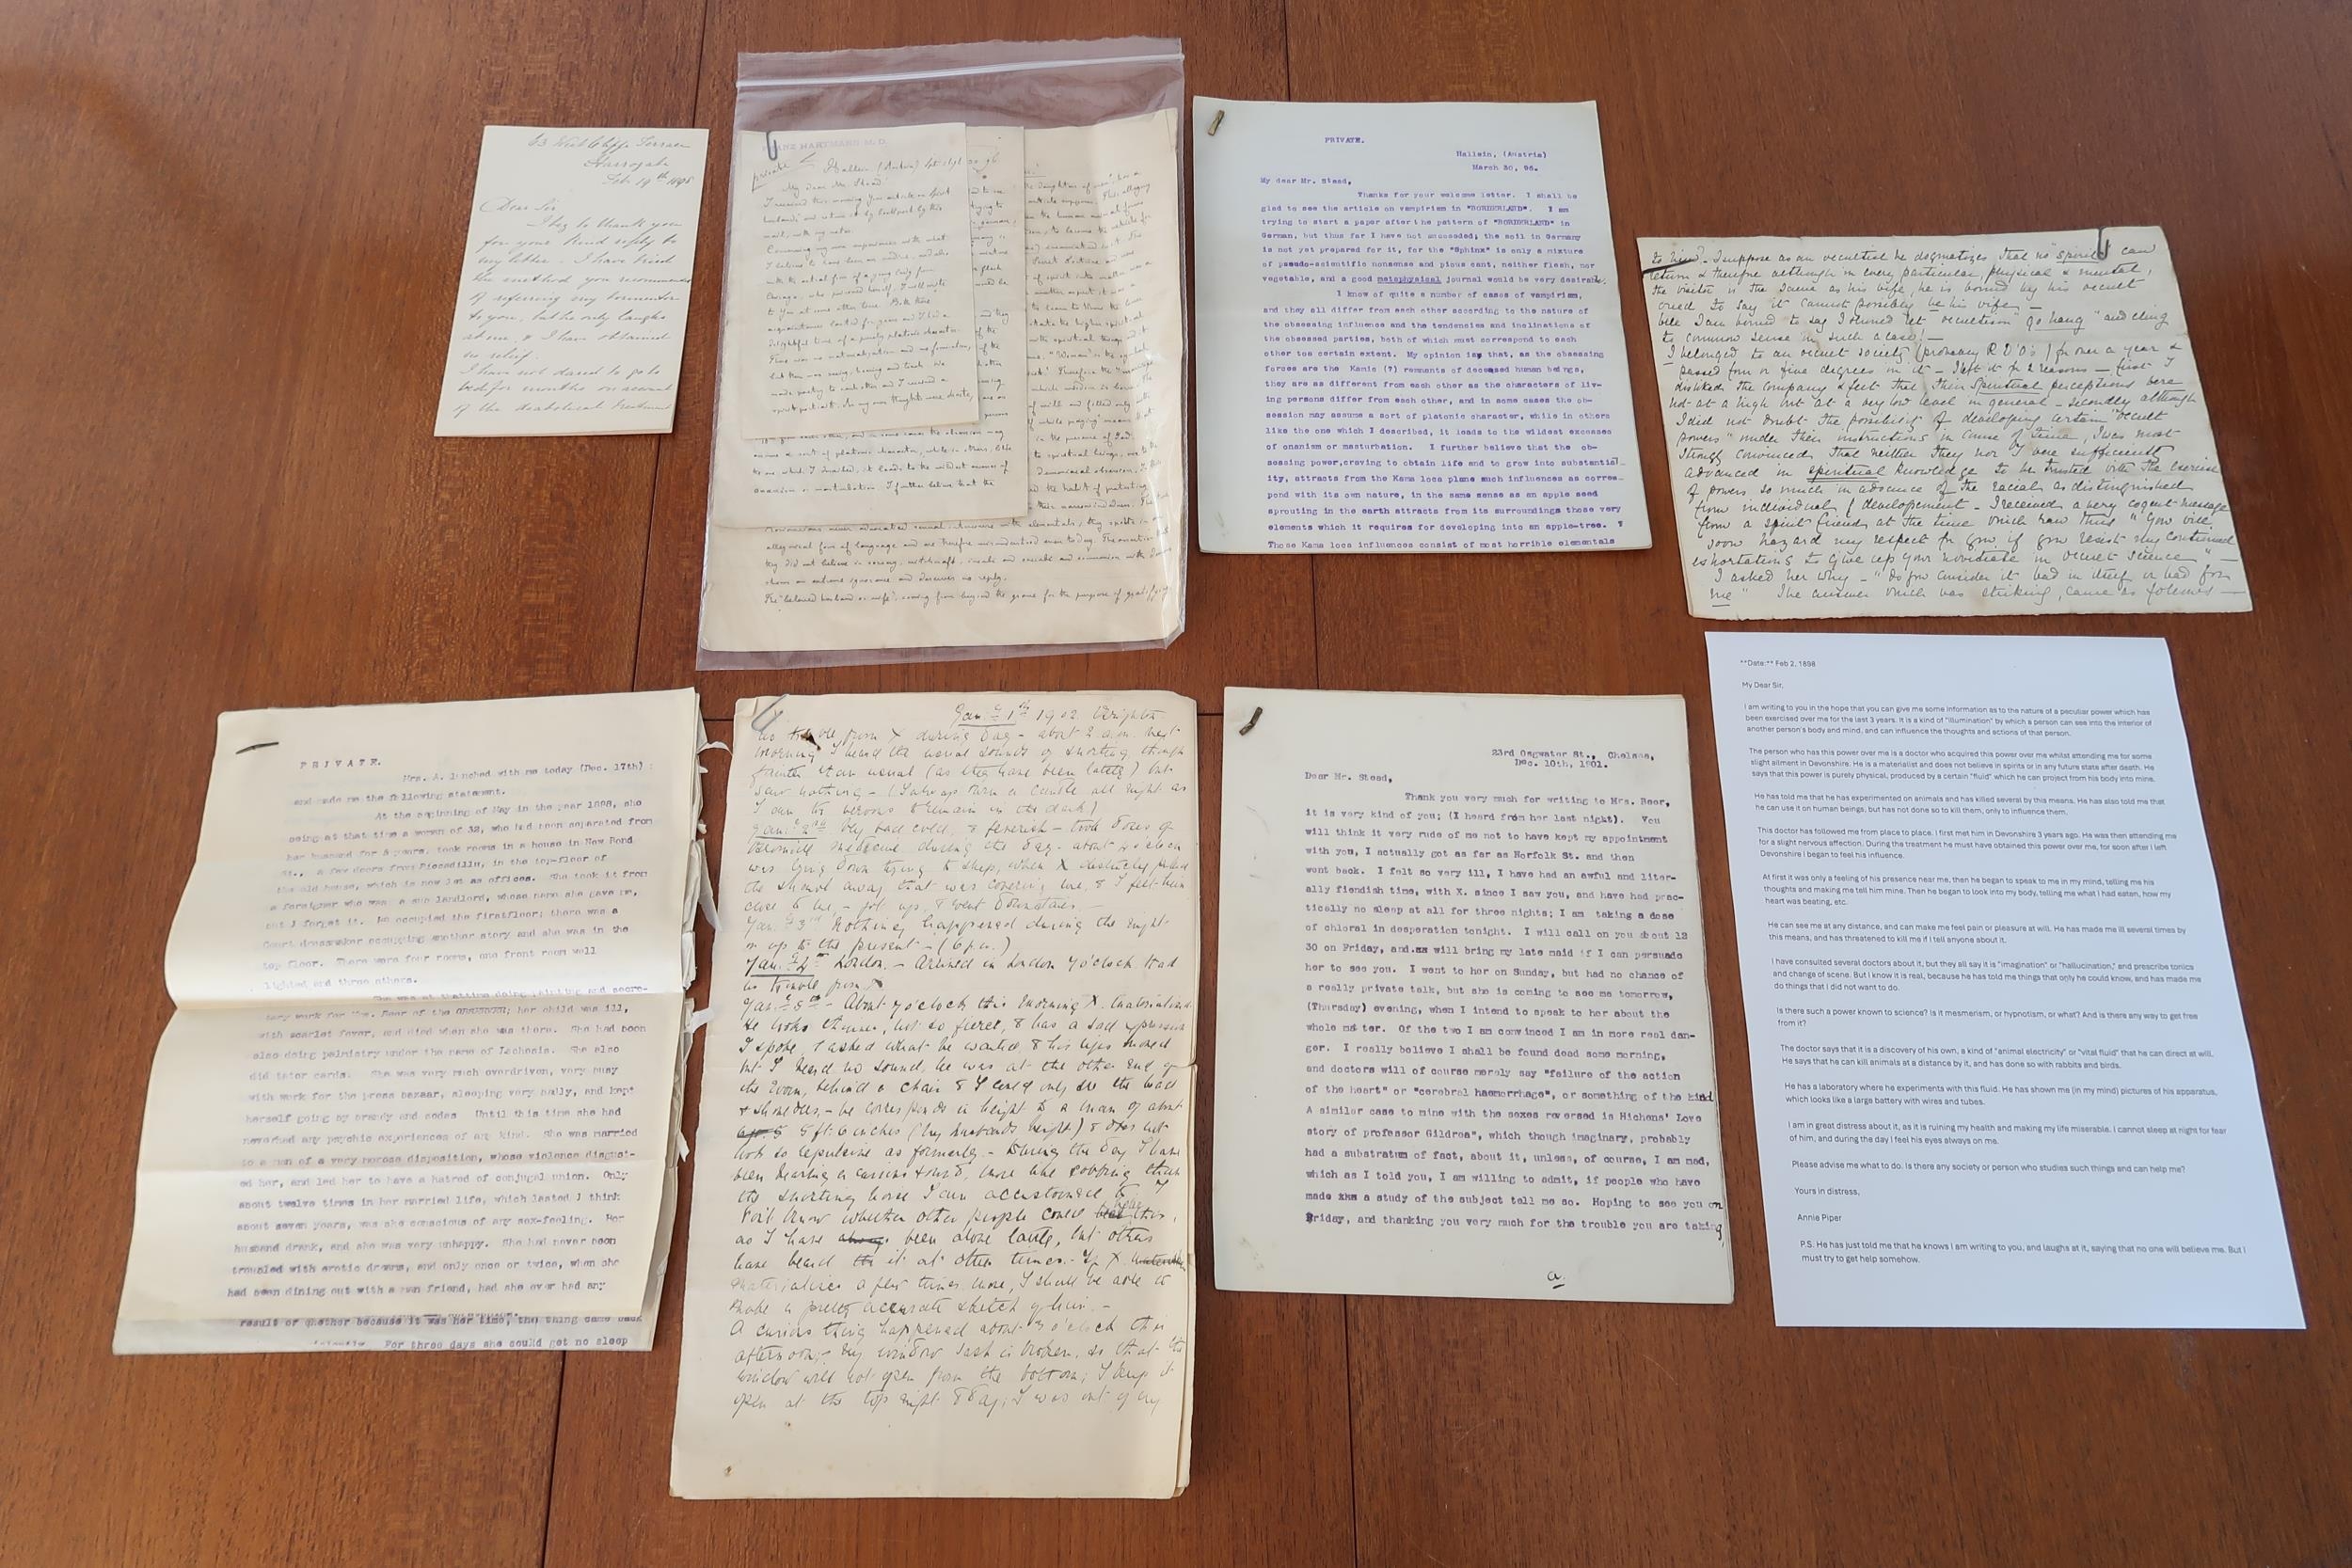 63 West Cliffe Terrace
Harrogate
Feb 19th 1898
Dear Sir
I beg to thank you
for your kind reply to
my letter. I have tried
the method you recommend
of referring my tormentor
to you, but he only laughs
at me, & I have obtained
no relief.
I have not dared to go to
bed for months on account
of the diabolical treatment
FRANZ HARTMANN M.D.
private
Hallein (Austria) Sept
My dear Mr. Stead
I received this morning your
husband, and return it by
mail, with my notes.
Concerning my own experiences with what
I believe to have been an undine, and also
with the astral form of a young lady from
Chicago, who poisoned herself, I will write
to you at some other time. Both these
acquaintances lasted for years and I had a
delightful time of a purely platonic character.
There was no materialisation and no
but there was seeing, hearing and touch. We
made poetry to each other and I received a
spirit portrait. In my own thoughts were
assume a sort of platonic character, while in others, like
the one which I described, it leads to the wildest excesses of
onanism or masturbation. I further believe that the
Rosicrucians never advocated sexual intercourse with elementals, they spoke in an
allegorical form of language and are therefore misunderstood even to-day. The assertion that
they did not believe in sorcery, witchcraft,
shows an extreme ignorance and deserves no reply.
The "beloved husband or wife", coming from beyond the grave for the purpose of gratifying
PRIVATE.
Hallein, (Austria)
March 30, 96.
My dear Mr. Stead,
Thanks for your welcome letter. I shall be
glad to see the article on vampirism in "BORDERLAND". I am
trying to start a paper after the pattern of "BORDERLAND" in
German, but thus far I have not succeeded; the soil in Germany
is not yet prepared for it, for the "Sphinx" is only a mixture
of pseudo-scientific nonsense and pious cant, neither flesh, nor
vegetable, and a good metaphysical journal would be very desirable.
I know of quite a number of cases of vampirism,
and they all differ from each other according to the nature of
the obsessing influence and the tendencies and inclinations of
the obsessed parties, both of which must correspond to each
other toa certain extent. My opinion is that, as the obsessing
forces are the Kamic (?) remnants of deceased human beings,
they are as different from each other as the characters of liv-
ing persons differ from each other, and in some cases the ob-
session may assume a sort of platonic character, while in others
like the one which I described, it leads to the wildest excesses
of onanism or masturbation. I further believe that the ob-
sessing power, craving to obtain life and to grow into substantial-
ity, attracts from the Kama loca plane such influences as corres-
pond with its own nature, in the same sense as an apple seed
sprouting in the earth attracts from its surroundings those very
elements which it requires for developing into an apple-tree.
Those Kama loca influences consist of most horrible elementals
to him. I suppose as an occultist he dogmatizes that no "spirit" can
return & therefore although in every particular, physical & mental,
the visitor is the same as his wife, he is bound by his occult
creed to say it cannot possibly be his wife —
Well I am bound to say I should let "occultism" "go hang" and cling
to common sense in such a case! —
I belonged to an occult society (probably R D'O's) for over a year &
passed four or five degrees in it — I left it for 2 reasons — first I
disliked the company & felt that their spiritual perceptions were
not at a high but at a very low level in general — secondly although
I did not doubt the possibility of developing certain "occult
powers" under their instructions in course of time, I was most
strongly convinced that neither they nor I were sufficiently
advanced in spiritual knowledge to be trusted with the exercise
of powers so much in advance of the racial as distinguished
from individual development — I received a very cogent message
from a spirit friend at the time which ran thus "You will
soon hazard my respect for you if you resist my continued
exhortations to give up your novitiate in occult science"
I asked her why — "Do you consider it bad in itself or bad for
me" The answer which was striking, came as follows —
PRIVATE.
Mrs. A. lunched with me today (Dec. 17th) :
and made me the following statement.
At the beginning of May in the year 1898, she
being at that time a woman of 32, who had been separated from
her husband for years, took rooms in a house in New Bond
St., a few doors from Piccadilly, in the top-floor of
the old house, which is now let as offices. She took it from
a foreigner who was a sub landlord, whose name she gave me,
but I forget it. He occupied the firstfloor; there was a
Court dressmaker occupying another story and she was in the
top floor. There were four rooms, one front room well
lighted and three others.
She was at thattime doing painting and secre-
tary work for Mrs. Beer of the OBSERVER; her child was ill,
with scarlet fever, and died when she was there. She had been
also doing palmistry under the name of Lachesis. She also
did tater cards. She was very much overdriven, very busy
with work for the press bazaar, sleeping very badly, and kept
herself going by brandy and sodas Until this time she had
neverhad any psychic experiences of any kind. She was married
to a man of a very morose disposition, whose violence disgust-
ed her, and led her to have a hatred of conjugal union. Only
about twelve times in her married life, which lasted I think
about seven years, was she conscious of any sex-feeling. Her
husband drank, and she was very unhappy. She had never been
troubled with erotic dreams, and only once or twice, when she
had been dining out with a man friend, had she ever had any
result or whether because it was her time, the thing came back
violently. For three days she could get no sleep
Jan. 1st 1902 Brighton
No trouble from X during day — about 2 a.m. next
morning I heard the usual sounds of snorting though
fainter than usual (as they have been lately) but
saw nothing — (I always burn a candle all night as
I am too nervous to remain in the dark)
Jan. 2nd Very bad cold, & feverish — took doses of
bromide medicine during the day — about 4 o'clock
was lying down trying to sleep, when X distinctly pulled
the shawl away that was covering me, & I felt him
close to me, — got up, & went downstairs —
Jan. 3rd Nothing happened during the night
or up to the present — (6 p.m.)
Jan. 4th London. — Arrived in London 4 o'clock. Had
no trouble from X
Jan. 5th — About 4 o'clock this morning X materialised
He looks thinner, not so fierce, & has a sad expression
I spoke, & asked what he wanted & his lips moved
but I heard no sound, he was at the other end of
the room, behind a chair & I could only see the head
& shoulders, — he corresponds in height to a man of about
5 ft. 6 inches (my husband's height) & does not
look so repulsive as formerly. — During the day I have
been hearing a curious sound, more like sobbing than
the snorting noise I am accustomed to. I
don't know whether other people could hear this,
as I have been alone lately, but others
have heard it at other times. — If X
materialises a few times more, I shall be able to
make a pretty accurate sketch of him. —
A curious thing happened about 3 o'clock this
afternoon; my window sash is broken, so that the
window will not open from the bottom; I keep it
open at the top night & day; I was out of my
23rd Oagwater St., Chelsea,
Dec. 10th, 1901.
Dear Mr. Stead,
Thank you very much for writing to Mrs. Beer,
it is very kind of you; (I heard from her last night). You
will think it very rude of me not to have kept my appointment
with you, I actually got as far as Norfolk St. and then
went back. I felt so very ill, I have had an awful and liter-
ally fiendish time, with X. since I saw you, and have had prac-
tically no sleep at all for three nights; I am taking a dose
of chloral in desperation tonight. I will call on you about 12
30 on Friday, and.xx will bring my late maid if I can persuade
her to see you. I went to her on Sunday, but had no chance of
a really private talk, but she is coming to see me tomorrow,
(Thursday) evening, when I intend to speak to her about the
whole matter. Of the two I am convinced I am in more real dan-
ger. I really believe I shall be found dead some morning,
and doctors will of course merely say "failure of the action
of the heart" or "cerebral haemorrhage", or something of the kind
A similar case to mine with the sexes reversed is Hichens' Love
story of professor Gildrea", which though imaginary, probably
had a substratum of fact, about it, unless, of course, I am mad,
which as I told you, I am willing to admit, if people who have
made xxx a study of the subject tell me so. Hoping to see you on
Friday, and thanking you very much for the trouble you are taking,
a.
**Date:** Feb 2, 1898
My Dear Sir,
I am writing to you in the hope that you can give me some information as to the nature of a peculiar power which has
been exercised over me for the last 3 years. It is a kind of "illumination" by which a person can see into the interior of
another person's body and mind, and can influence the thoughts and actions of that person.
The person who has this power over me is a doctor who acquired this power over me whilst attending me for some
slight ailment in Devonshire. He is a materialist and does not believe in spirits or in any future state after death. He
says that this power is purely physical, produced by a certain "fluid" which he can project from his body into mine.
He has told me that he has experimented on animals and has killed several by this means. He has also told me that
he can use it on human beings, but has not done so to kill them, only to influence them.
This doctor has followed me from place to place. I first met him in Devonshire 3 years ago. He was then attending me
for a slight nervous affection. During the treatment he must have obtained this power over me, for soon after I left
Devonshire I began to feel his influence.
At first it was only a feeling of his presence near me, then he began to speak to me in my mind, telling me his
thoughts and making me tell him mine. Then he began to look into my body, telling me what I had eaten, how my
heart was beating, etc.
He can see me at any distance, and can make me feel pain or pleasure at will. He has made me ill several times by
this means, and has threatened to kill me if I tell anyone about it.
I have consulted several doctors about it, but they all say it is "imagination" or "hallucination," and prescribe tonics
and change of scene. But I know it is real, because he has told me things that only he could know, and has made me
do things that I did not want to do.
Is there such a power known to science? Is it mesmerism, or hypnotism, or what? And is there any way to get free
from it?
The doctor says that it is a discovery of his own, a kind of "animal electricity" or "vital fluid" that he can direct at will.
He says that he can kill animals at a distance by it, and has done so with rabbits and birds.
He has a laboratory where he experiments with this fluid. He has shown me (in my mind) pictures of his apparatus,
which looks like a large battery with wires and tubes.
I am in great distress about it, as it is ruining my health and making my life miserable. I cannot sleep at night for fear
of him, and during the day I feel his eyes always on me.
Please advise me what to do. Is there any society or person who studies such things and can help me?
Yours in distress,
Annie Piper
P.S. He has just told me that he knows I am writing to you, and laughs at it, saying that no one will believe me. But I
must try to get help somehow.